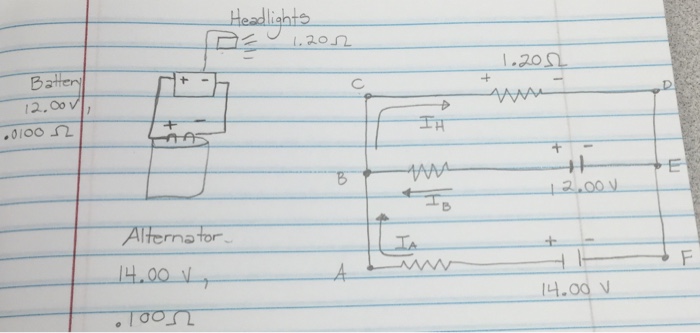 Headlights
1.20Ω
Battery
12.00V,
.0100 Ω
+ -
+ -
Alternator
14.00 V,
.100Ω
1.20Ω
C
+ -
D
I_H
B
+ -
E
I_B
12.00V
I_A
A
+ -
F
14.00 V